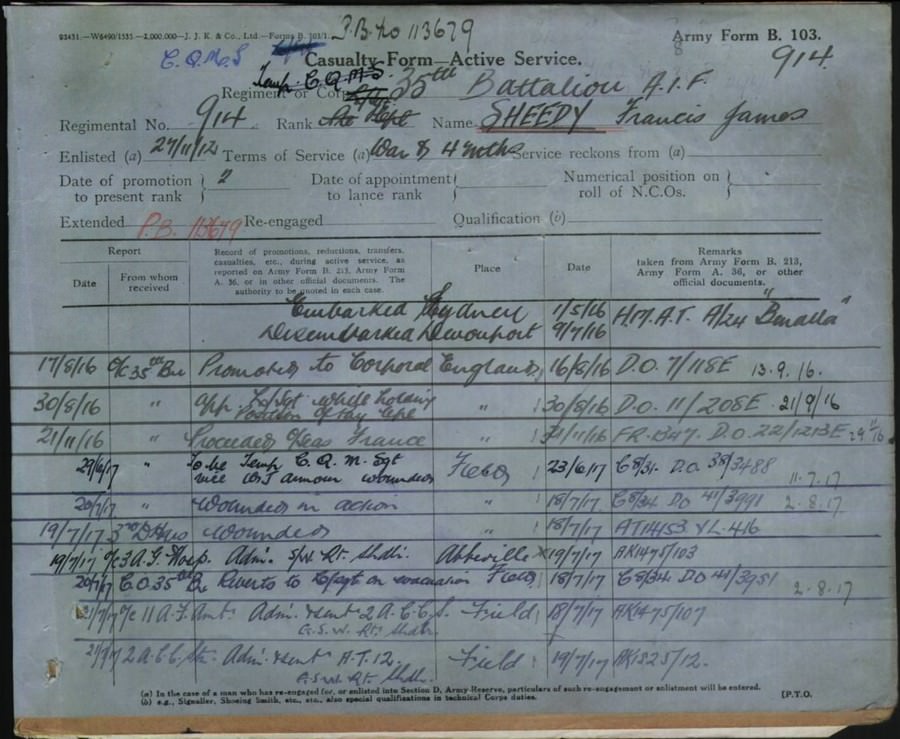 P.B. No 113679
93431.—W6490/1535.—2,000,000—J. J. K. & Co., Ltd.—Forms B. 103/1.
Army Form B. 103.
8
C.Q.M.S
Casualty Form—Active Service.
914
Temp. C.Q.M.S.
Regiment or Corps 35th Battalion A.I.F
Regimental No. 914 Rank Name SHEEDY Francis James
Enlisted (a) Terms of Service (a) War & 4 mths Service reckons from (a)
Date of promotion to present rank } Date of appointment to lance rank } Numerical position on roll of N.C.Os. }
Extended P.B. 113679 Re-engaged Qualification (b)
Report
Date
From whom received
Record of promotions, reductions, transfers, casualties, etc., during active service, as reported on Army Form B. 213, Army Form A. 36, or in other official documents. The authority to be quoted in each case.
Place
Date
Remarks taken from Army Form B. 213, Army Form A. 36, or other official documents.
Embarked Sydney 1/5/16 H.M.A.T. A/24 "Benalla"
Disembarked Devonport 9/7/16
17/8/16 O/C 35th Bn Promoted to Corporal England 16/8/16 D.O. 7/118E 13.9.16.
30/8/16 " App. L/Sgt whilst holding " 30/8/16 D.O. 11/208E 21/9/16
Position of Pay Cpl
21/11/16 " Proceeded O/seas France " 21/11/16 FR.B47. D.O.22/1213E
29/6/17 " To be Temp C.Q.M. Sgt Field 23/6/17 C8/31. D.O. 38/3488
vice wounded 11.7.17
20/7/17 " Wounded in action " 18/7/17 C8/34 DO 41/3991 2.8.17
19/7/17 Wounded " 18/7/17
19/7/17 O/C 3 A.G. Hosp. Adm. S/W Rt. Shdr. Abbeville 19/7/17 AK1475/103
20/7/17 C.O 35th Bn Reverts to L/Sgt on evacuation Field 18/7/17 C8/34 DO 41/3951 2.8.17
O/C 11 A.F. Amb. Adm. & sent 2 A.C.C.S. Field 18/7/17 AK1475/107
G.S.W. Rt. Shdr.
2 A.C.C. Stn. Adm. & sent A.T.12. Field 19/7/17 AK1525/12.
G.S.W. Rt. Shdr.
(a) In the case of a man who has re-engaged for, or enlisted into Section D, Army Reserve, particulars of such re-engagement or enlistment will be entered.
(b) e.g., Signaller, Shoeing Smith, etc., etc., also special qualifications in technical Corps duties.
[P.T.O.